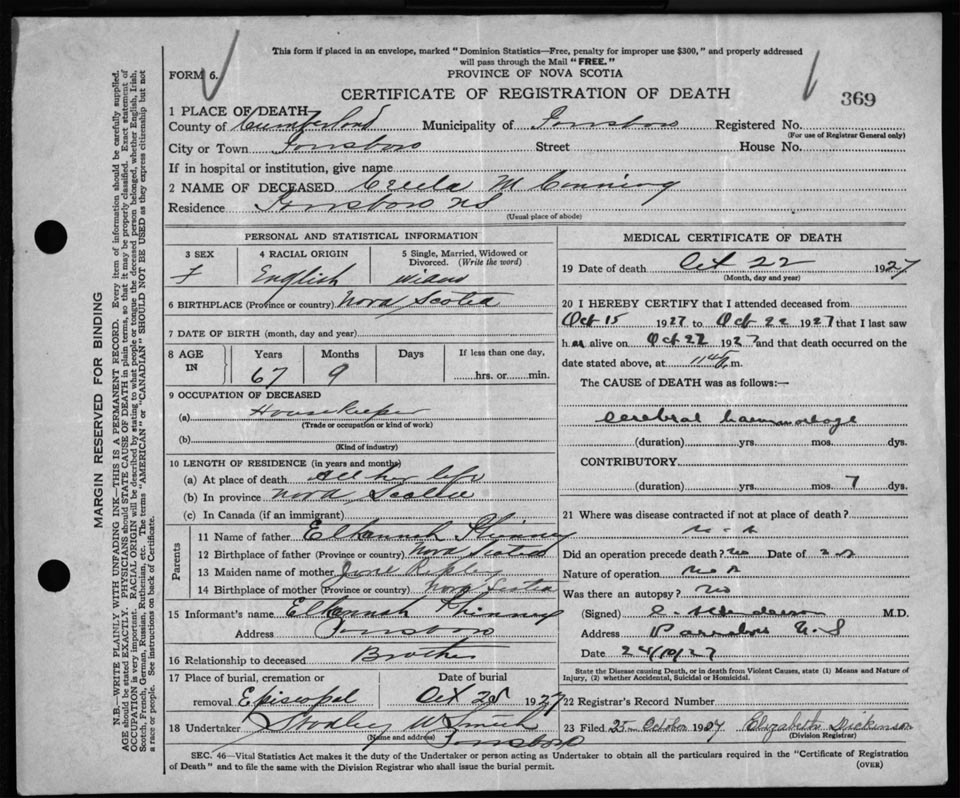 This form if placed in an envelope, marked "Dominion Statistics—Free, penalty for improper use $300," and properly addressed
will pass through the Mail "FREE."
FORM 6.
PROVINCE OF NOVA SCOTIA
CERTIFICATE OF REGISTRATION OF DEATH
369
1 PLACE OF DEATH
County of Cumberland Municipality of Parrsboro Registered No.
(For use of Registrar General only)
City or Town Parrsboro Street House No.
If in hospital or institution, give name
2 NAME OF DECEASED M
Residence Parrsboro NS
(Usual place of abode)
PERSONAL AND STATISTICAL INFORMATION
3 SEX 4 RACIAL ORIGIN 5 Single, Married, Widowed or
Divorced. (Write the word)
F English Widow
6 BIRTHPLACE (Province or country) Nova Scotia
7 DATE OF BIRTH (month, day and year)
8 AGE IN Years Months Days If less than one day,
67 9 hrs. or min.
9 OCCUPATION OF DECEASED
(a) Housekeeper
(Trade or occupation or kind of work)
(b)
(Kind of industry)
10 LENGTH OF RESIDENCE (in years and months)
(a) At place of death All her life
(b) In province Nova Scotia
(c) In Canada (if an immigrant)
Parents
11 Name of father Elkannah
12 Birthplace of father (Province or country) Nova Scotia
13 Maiden name of mother Jane
14 Birthplace of mother (Province or country) Nova Scotia
15 Informant's name Elkannah
Address Parrsboro
16 Relationship to deceased Brother
17 Place of burial, cremation or Date of burial
removal Episcopal Oct 1927
18 Undertaker Stodley W Smith
(Name and address) Parrsboro
MEDICAL CERTIFICATE OF DEATH
19 Date of death Oct 22 1927
(Month, day and year)
20 I HEREBY CERTIFY that I attended deceased from
Oct 15 1927 to Oct 22 1927 that I last saw
h er alive on Oct 22 1927 and that death occurred on the
date stated above, at m.
The CAUSE of DEATH was as follows:—
Cerebral haemorrhage
(duration) yrs. mos. dys.
CONTRIBUTORY
(duration) yrs. mos. 7 dys.
21 Where was disease contracted if not at place of death?
Did an operation precede death? no Date of
Nature of operation
Was there an autopsy? no
(Signed) M.D.
Address Parrsboro N.S
Date 24/10/27
State the Disease causing Death, or in death from Violent Causes, state (1) Means and Nature of
Injury, (2) whether Accidental, Suicidal or Homicidal.
22 Registrar's Record Number
23 Filed 25 October 1927 Elizabeth Dickinson
(Division Registrar)
SEC. 46—Vital Statistics Act makes it the duty of the Undertaker or person acting as Undertaker to obtain all the particulars required in the "Certificate of Registration
of Death" and to file the same with the Division Registrar who shall issue the burial permit.
(OVER)
MARGIN RESERVED FOR BINDING
N.B.—WRITE PLAINLY WITH UNFADING INK—THIS IS A PERMANENT RECORD. Every item of information should be carefully supplied.
AGE should be stated EXACTLY. PHYSICIANS should STATE CAUSE OF DEATH in plain terms, so that it may be properly classified. Exact statement of
OCCUPATION is very important. RACIAL ORIGIN will be described by stating to what people or tongue the deceased person belonged, whether English, Irish,
Scotch, French, German, Russian, Ruthenian, etc. The terms "AMERICAN" or "CANADIAN" SHOULD NOT BE USED as they express citizenship but not
a race or people. See instructions on back of Certificate.